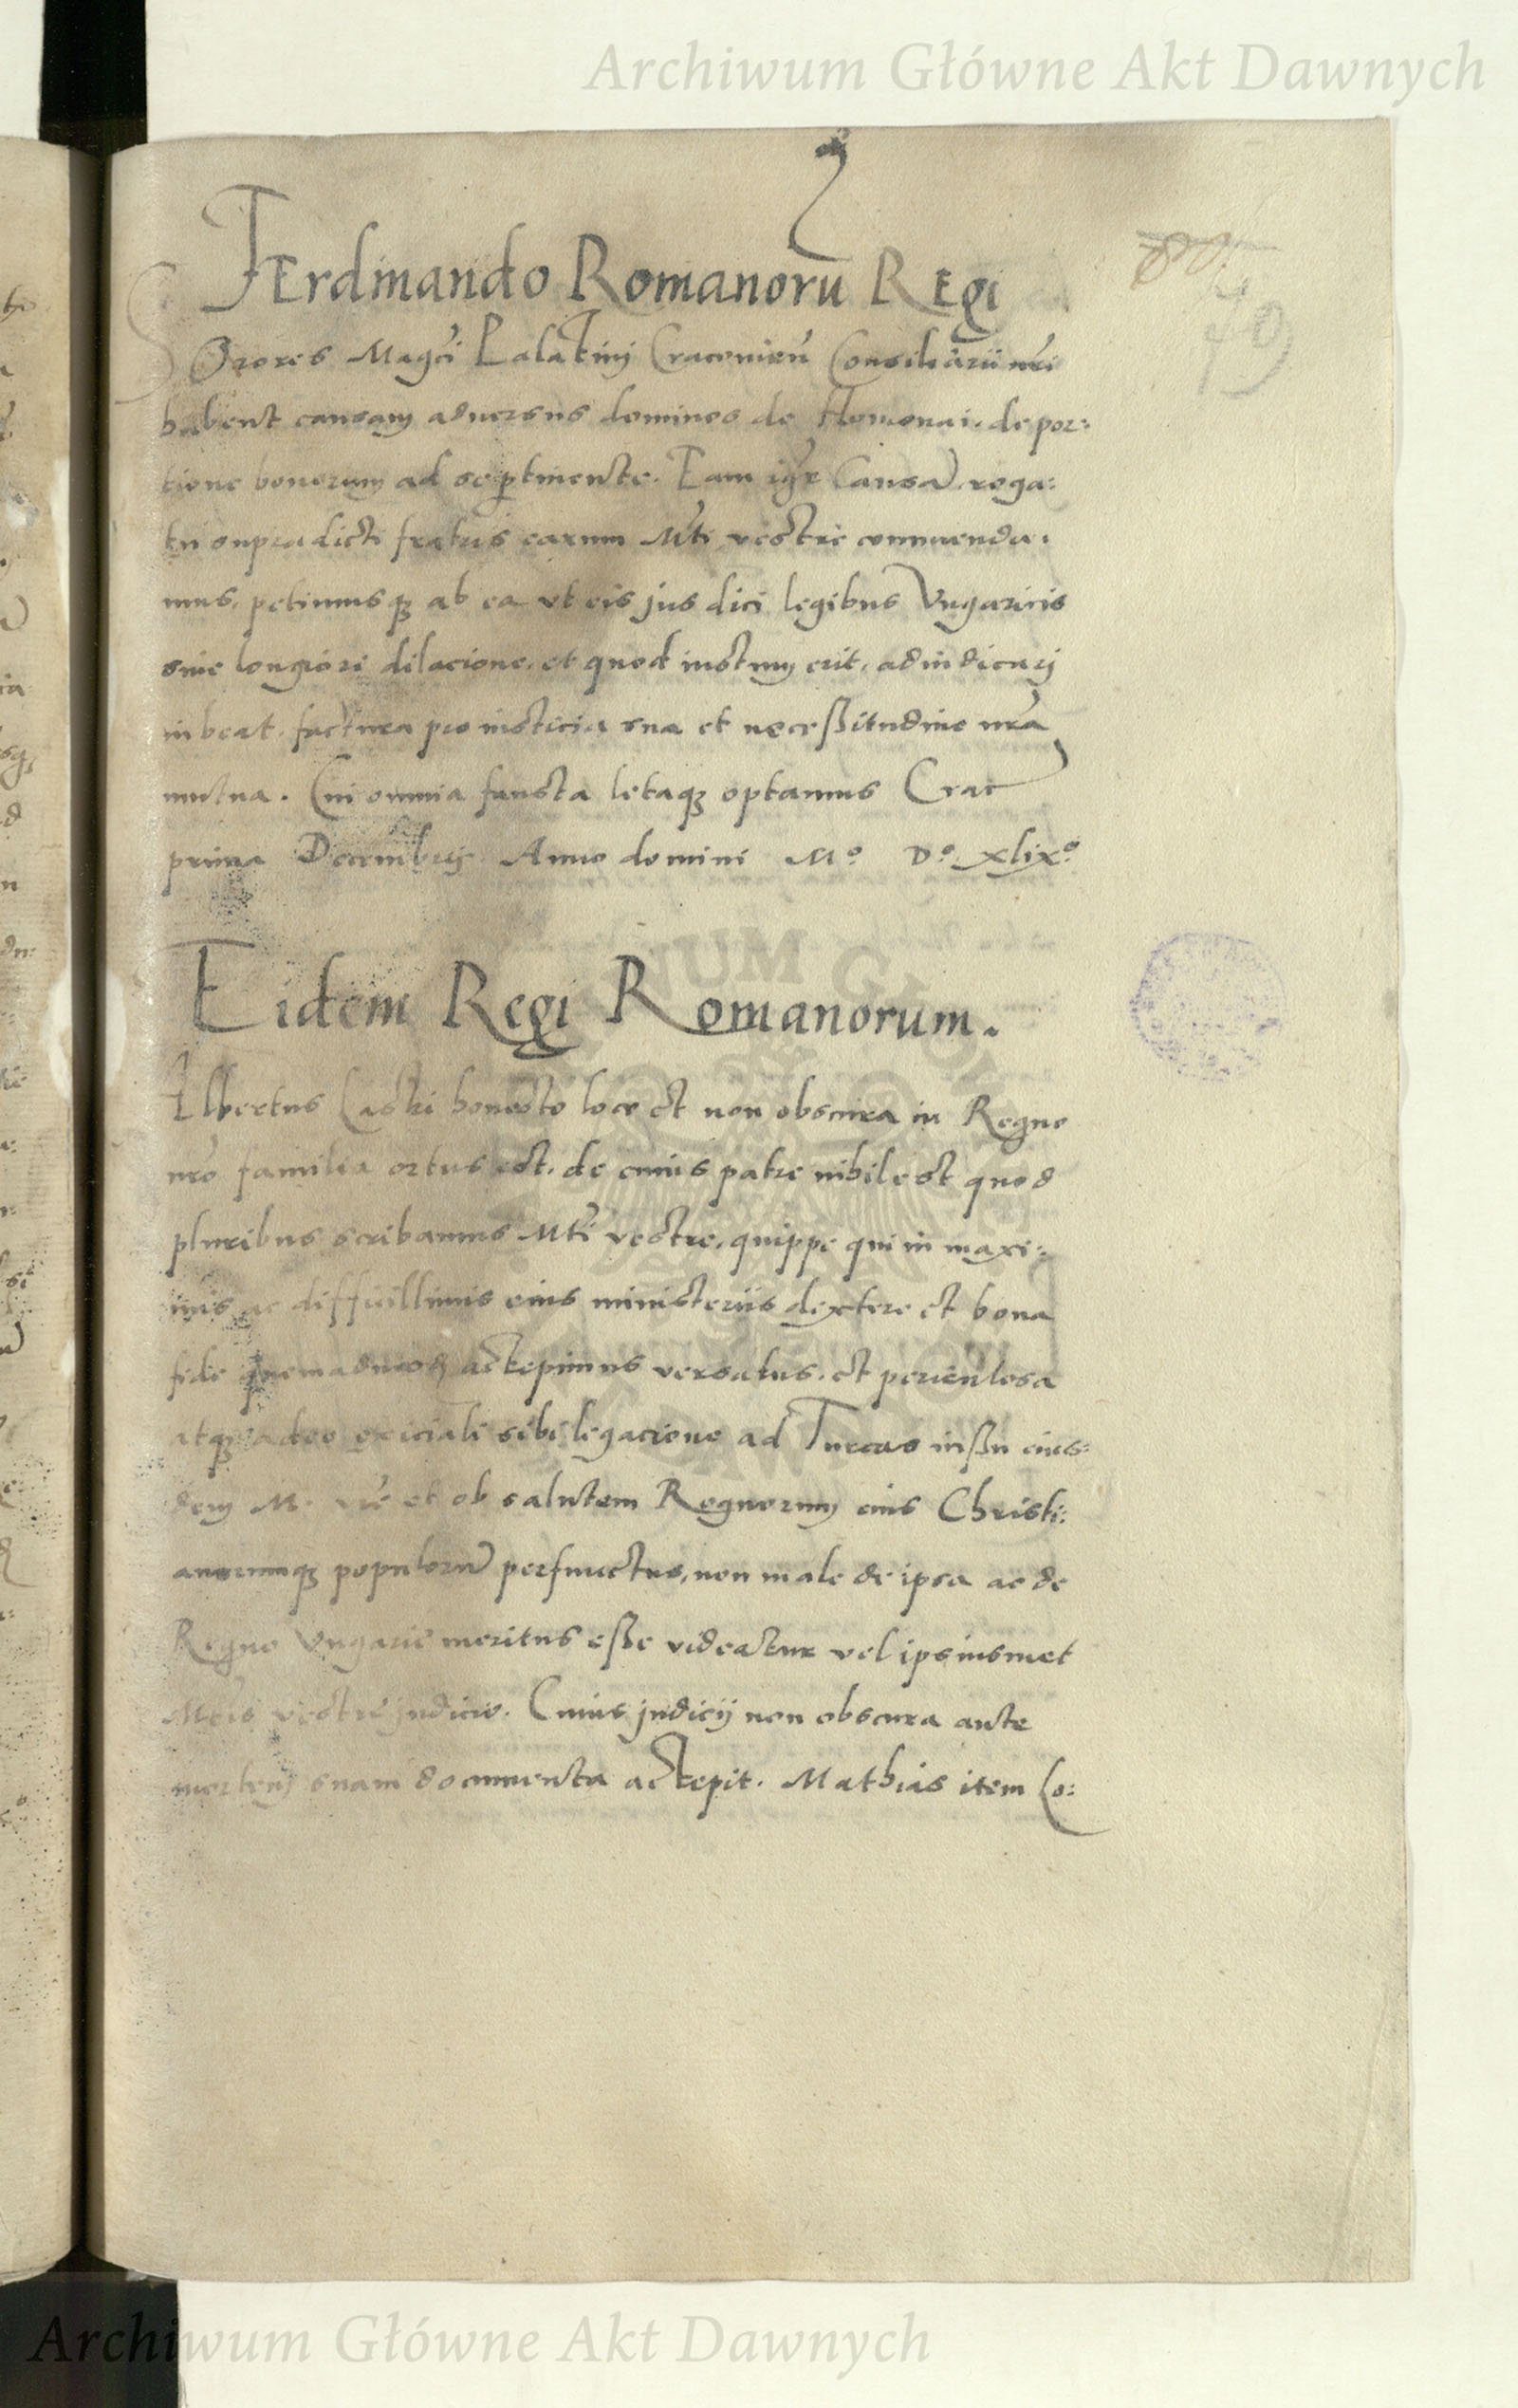 Archiwum Główne Akt Dawnych
79
Ferdinando Romanorū Regi
Sorores Magci Palatinj Cracovien̄ Consiliarii nr̄i
habent causam adversus dominos de Homonai, de por:
tione bonorum ad se ꝑtinente. Eam igr̄ Causā, roga:
tu supradicti fratris earum Mti vestrē commenda,
mus, petimusqȝ ab ea vt eis jus dici legibus Vngaricis
sine longiori dilacione, et quod iustum erit, adiudicarj
iubeat, factura pro iusticia sua et necessitudine nr̄a
mutua. Cui omnia fausta letaqȝ optamus Crac
prima Decembrij Anno domini Mº Dº xlixº
Eidem Regi Romanorum.
Albertus Laski honesto loco et non obscura in Regno
nr̄o familia ortus est, de cuius patre nihil est quod
pluribus scribamus Mti vestre, quippe qui in maxi:
mis ac difficillimis eius ministeriis dextere et bona
fide quemadmodȝ accepimus versatus, et periculosa
atqȝ adeo exiciali sibi legacione ad Turcas iussu eius:
dem M. vrē et ob salutem Regnorum eius Christi:
anorumqȝ populorū perfunctus, non male de ipsa ac de
Regno Vngarie meritus esse videatur vel ipsiusmet
Mtis vestrē judicio. Cuius judicij non obscura ante
mortem suam documenta accepit. Mathias item Lo:
Archiwum Główne Akt Dawnych